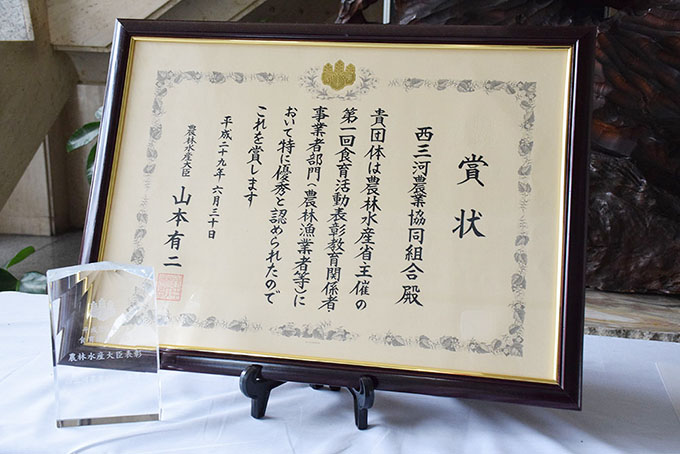 賞状
西三河農業協同組合 殿
貴団体は農林水産省主催の
第一回食育活動表彰教育関係者
事業者部門(農林漁業者等)に
おいて特に優秀と認められたので
これを賞します
平成二十九年六月三十日
農林水産大臣 山本有二
農林水産大臣表彰